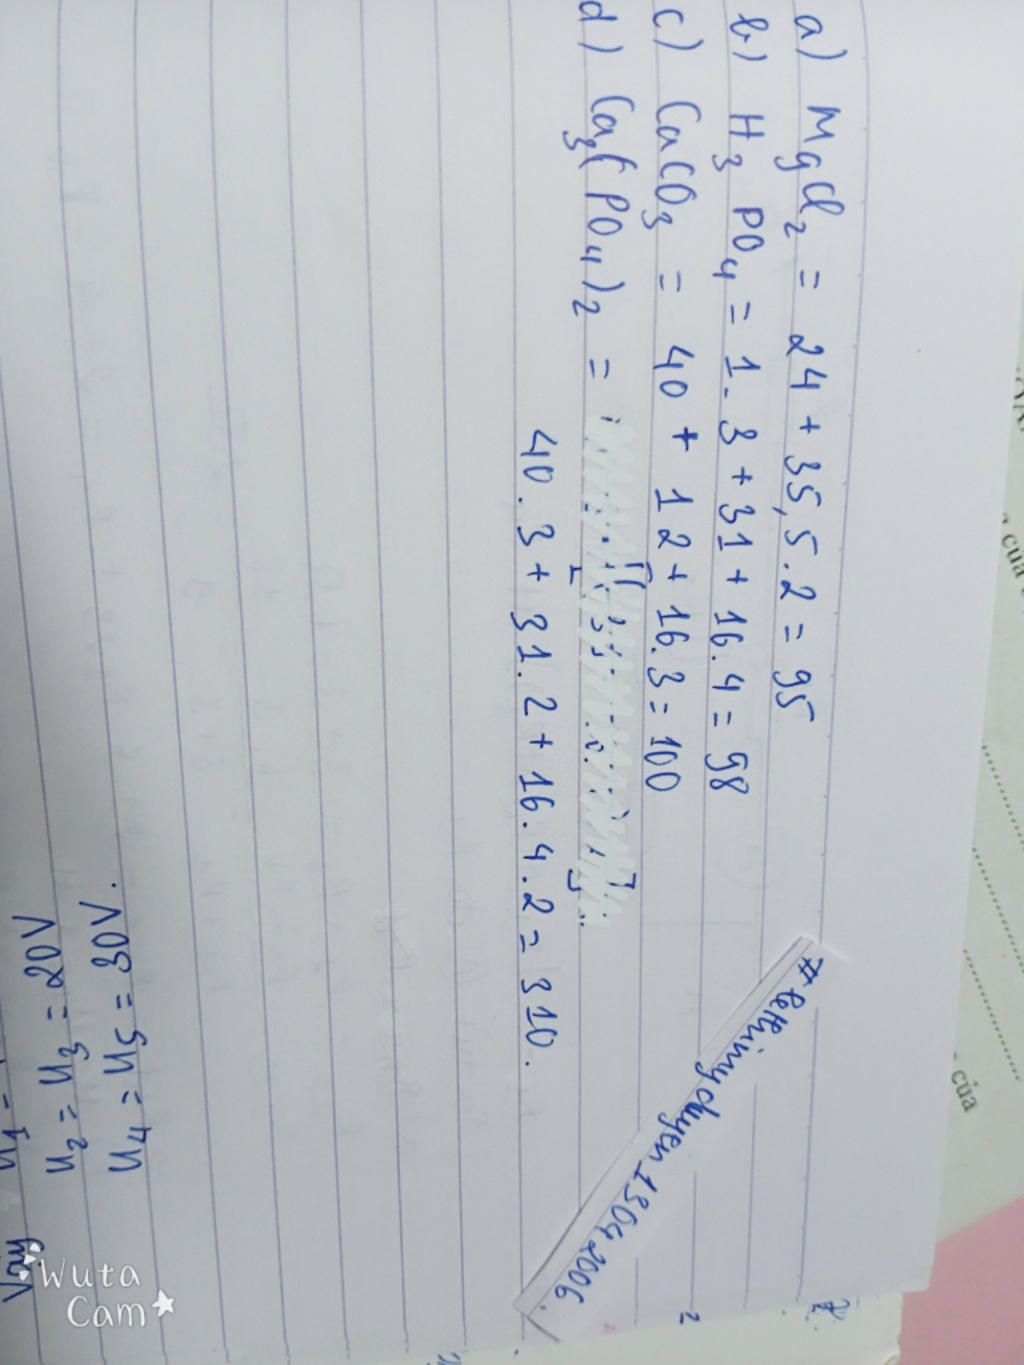 a) MgCl2 = 24 + 35,5.2 = 95
b) H3 PO4 = 1.3 + 31 + 16.4 = 98
c) CaCO3 = 40 + 12 + 16.3 = 100
d) Ca3(PO4)2 =
40.3 + 31.2 + 16.4.2 = 310.
Vậy U1 =
U2 = U3 = 20V
U4 = U5 = 30V.
của
của
Wuta
Cam